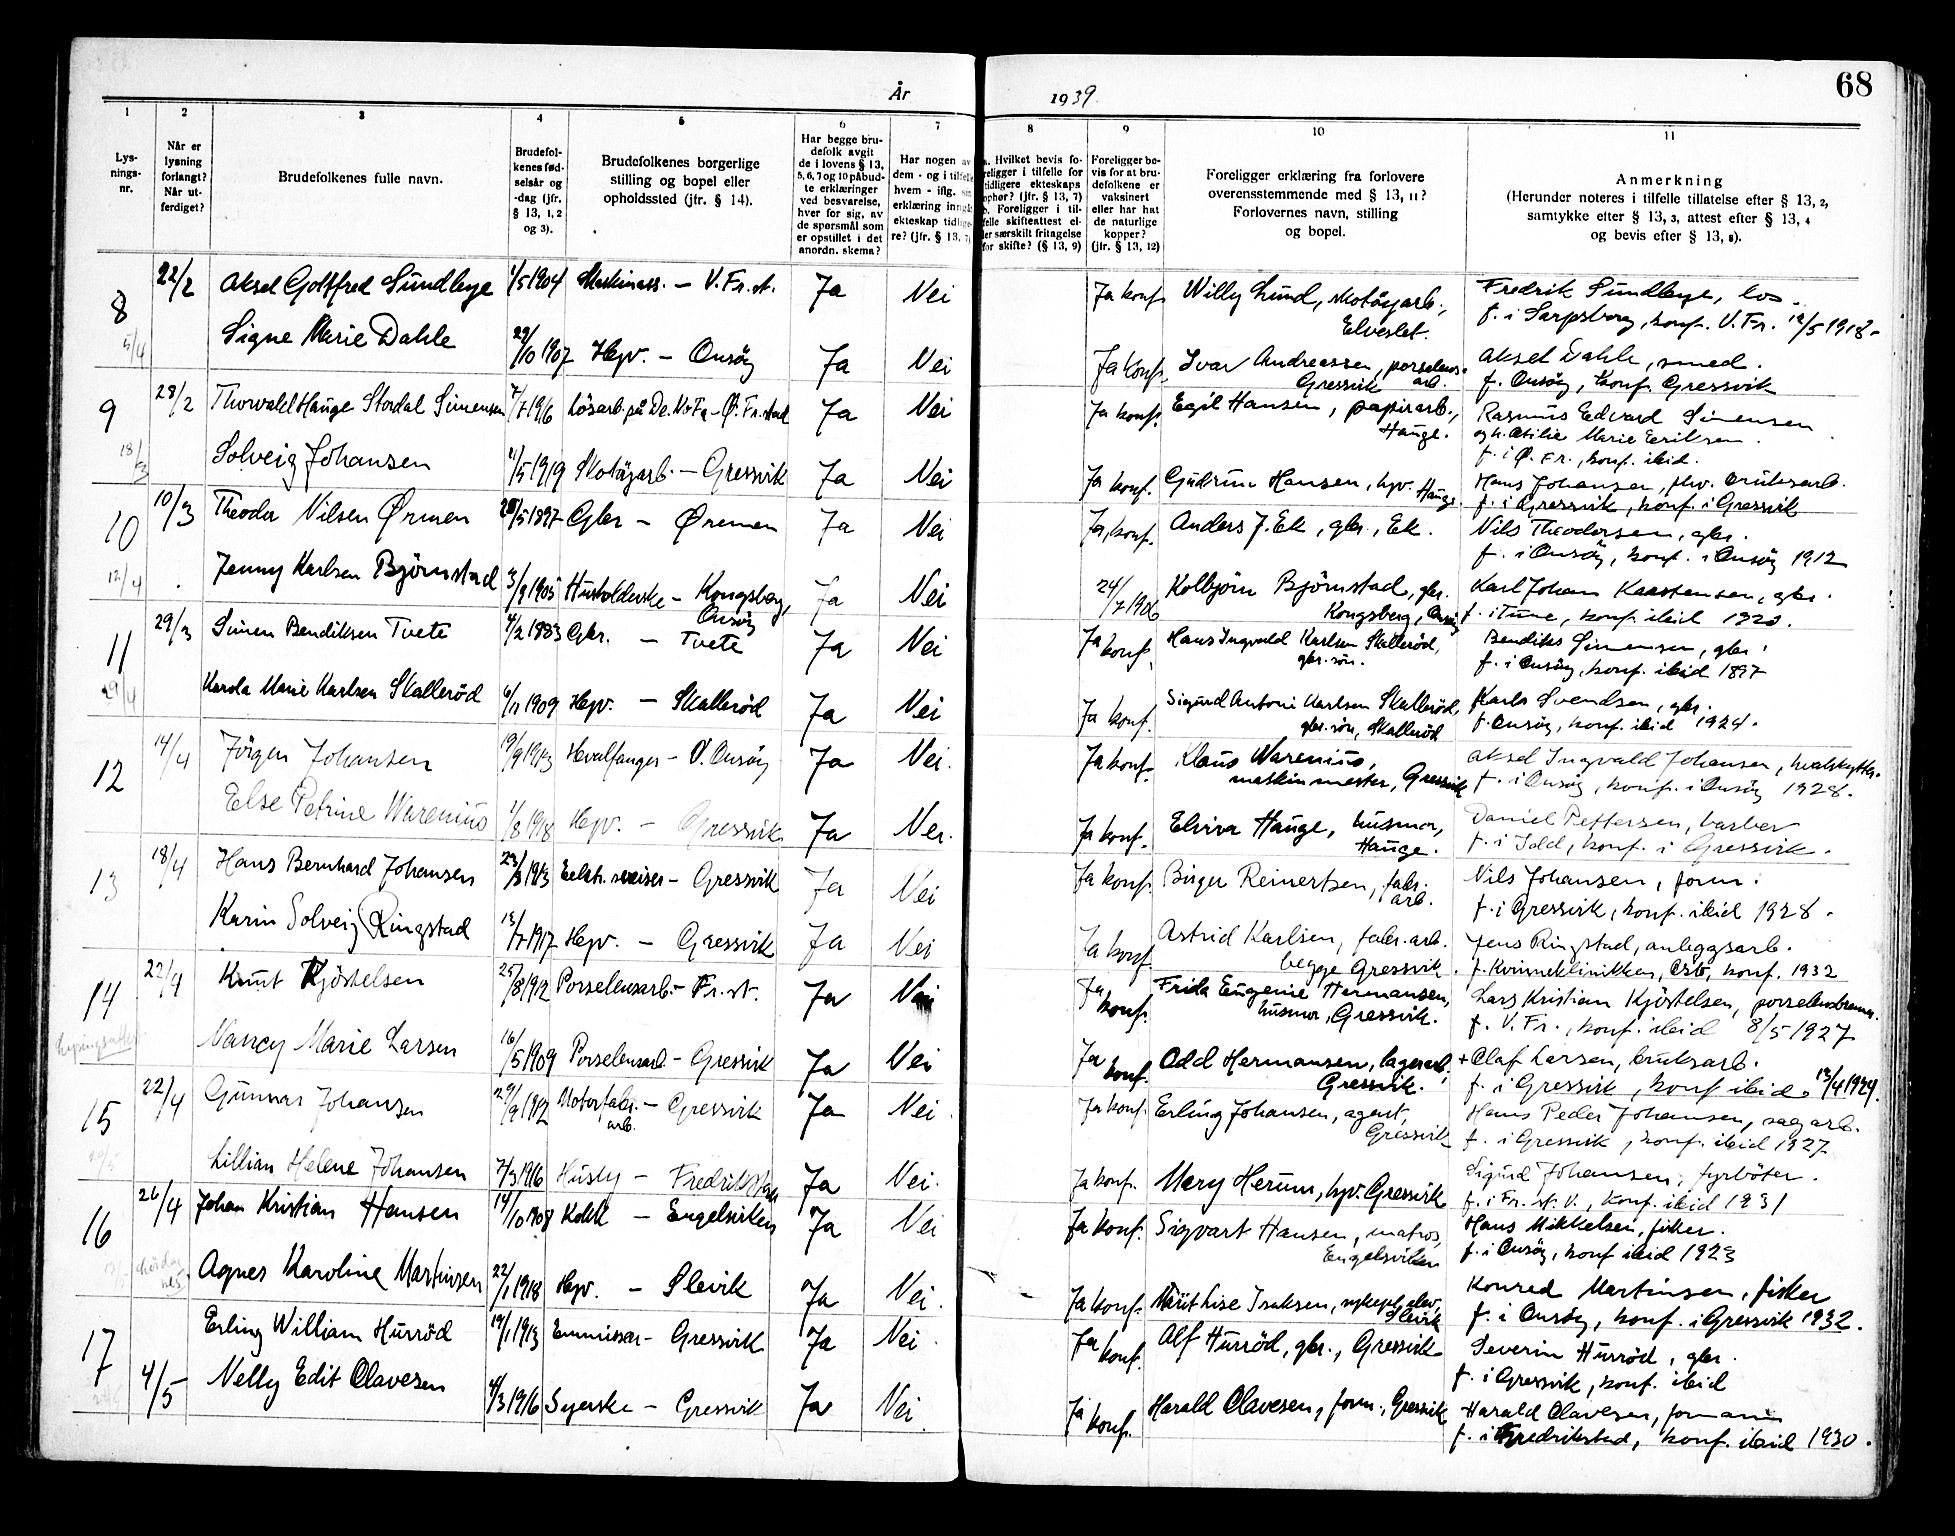 68
År 1939.
1 2 3 4 5 6 7 8 9 10 11
Lys-nings-nr.
Når er lysning forlangt? Når ut-ferdiget?
Brudefolkenes fulle navn.
Brudefol-kenes fød-selsår og -dag (jfr. § 13, 1, 2 og 3).
Brudefolkenes borgerlige stilling og bopel eller opholdssted (jfr. § 14).
Har begge bru-defolk avgit de i lovens § 13, 5, 6, 7 og 10 påbud-te erklæringer ved besvarelse, hver for sig, av de spørsmål som er opstillet i det anordn. skema?
Har nogen av dem - og i tilfelle hvem - iflg. erklæring inngå ekteskap tidlige-re? (jfr. § 13, 7)
a. Hvilket bevis fo-religger i tilfelle for tidligere ekteskaps ophør? (jfr. § 13, 7) b. Foreligger i til-felle skifteattest el-ler særskilt fritagelse for skifte? (§ 13, 9)
Foreligger be-vis for at bru-defolkene er vaksinert eller har hat de naturlige kopper? (jfr. § 13, 12)
Foreligger erklæring fra forlovere overensstemmende med § 13, 11? Forlovernes navn, stilling og bopel.
Anmerkning (Herunder noteres i tilfelle tillatelse efter § 13, 2, samtykke efter § 13, 3, attest efter § 13, 4 og bevis efter § 13, 8).
8 22/2 Aksel Gottfred Sundbye 1/5 1904 Maskinass. – V. Fr.st. Ja Nei Ja konf. Willy Lund, skotøyarb., Elveslet. Fredrik Sundbye, los. f. i Sarpsborg, konf. V. Fr. 12/5 1918.
5/4 Signe Marie Dahle 29/10 1907 Hgv. – Onsøy Ja Nei Ja konf. Ivar Andreassen, porselens-arb. Gressvik Aksel Dahle, smed. f. Onsøy, konf. Gressvik
9 28/2 Thorvald Hauge Stordal Simensen 7/7 1916 Løsarb. på De N. Fa – Ø. Fr.stad Ja Nei Ja konf. Egil Hansen, papirarb., Hauge. Rasmus Edvard Simensen og h. Otilie Marie Eriksen. f. i Ø. Fr., konf. ibid.
18/3 Solveig Johansen 21/5 1919 Skotøyarb. – Gressvik Ja Nei Ja konf. Gudrun Hansen, hgv. Hauge Hans Johansen, fhv. bruksarb. f. i Gressvik, konf. i Gressvik
10 10/3 Theodor Nilsen Ørmen 28/5 1897 Gbr – Ørmen Ja Nei Ja, konf. Anders J. Ek, gbr., Ek. Nils Theodorsen, gbr. f. i Onsøy, konf. i Onsøy 1912
12/4 Jenny Karlsen Bjørnstad 3/9 1905 Husholderske – Kongsberg, Onsøy Ja Nei 24/7 1906 Kolbjørn Bjørnstad, gbr. Kongsberg, Onsøy Karl Johan Karstensen, gbr. f. i Tune, konf. ibid 1920.
11 29/3 Simen Bendiksen Tvete 4/2 1883 Gbr. – Tvete Ja Nei Ja konf. Hans Ingvald Karlsen Skallerød, gbr. søn. Bendiks Simensen, gbr. f. i Onsøy, konf. ibid 1897
29/4 Karda Marie Karlsen Skallerød 6/11 1909 Hgv. – Skallerød Ja Nei Ja konf. Sigurd Antoni Karlsen Skallerød, gbr. søn, Skallerød Karl Svendsen, gbr. f. Onsøy, konf. ibid 1924.
12 14/4 Jørgen Johansen 19/9 1913 Hvalfanger – V. Onsøy Ja Nei. Ja konf. Klaus Warenius, maskinmester, Gressvik Aksel Ingvald Johansen, hvalskytter. f. i Onsøy, konf. i Onsøy 1928.
Else Petrine Warenius 1/8 1918 Hgv. – Gressvik Ja Nei. Ja konf. Elvira Hauge, husmor, Hauge. Daniel Pettersen, barber f. i Idd, konf. i Gressvik.
13 18/4 Hans Bernhard Johansen 23/3 1913 Eelktr. sveiser – Gressvik Ja Nei Ja konf. Birger Reinertsen, fabr. arb. Nils Johansen, form. f. i Gressvik, konf. ibid 1928.
Karin Solveig Ringstad 13/7 1917 Hgv. – Gressvik Ja Nei Ja konf. Astrid Karlsen, fabr. arb. begge Gressvik. Jens Ringstad, anleggsarb. f. Kvinneklinikken, Oslo, konf. 1932
14 22/4 Knut Kjøstelsen 25/8 1912 Porselensarb. – Fr.st. Ja Nei Ja, konf. Frida Eugenie Hermansen, husmor, Gressvik. Lars Kristian Kjøstelsen, porselensbrenner. f. V. Fr., konf. ibid 8/5 1927
Lysningsattest Nancy Marie Larsen 16/5 1909 Porselensarb. – Gressvik Ja Nei Ja konf. Odd Hermansen, lagerarb, Gressvik. + Olaf Larsen, bruksarb. f. i Gressvik, konf ibid. 13/4 1924.
15 22/4 Gunnar Johansen 29/9 1912 Motorfabr. arb. – Gressvik Ja Nei Ja konf. Erling Johansen, agent, Gressvik Hans Peder Johansen, sagarb. f. i Gressvik, konf. ibid 1927
Lillian Helene Johansen 7/3 1916 Husby – Fredrikstad Ja Nei. Ja konf. Mary Herum, hgv. Gressvik Sigurd Johansen, fyrbøter. f. i Fr. st. V., konf. ibid 1931
16 26/4 Johan Kristian Hansen 14/10 1908 Kokk – Engelsviken Ja Nei Ja konf. Sigvart Hansen, matros, Engelsviken Hans Mikkelsen, fisker. f. i Onsøy, konf ibid 1923
Agnes Karoline Martinsen 22/1 1918 Hgv. – Slevik Ja Nei. Ja konf. Marit Lise Isaksen, sykepl. elev, Slevik Konrad Martinsen, fisker f. i Onsøy, konf. i Gressvik 1932.
17 Erling William Hurrød 19/1 1913 Emmissær – Gressvik Ja Nei. Ja konf. Alf Hurrød, gbr., Gressvik Severin Hurrød, gbr. f. i Gressvik, konf. ibid
4/5 Nelly Edit Olavesen 4/3 1916 Syerske – Gressvik Ja Nei Ja konf. Harald Olavesen, form., Gressvik Harald Olavesen, formann f. i Fredrikstad, konf. ibid 1930.